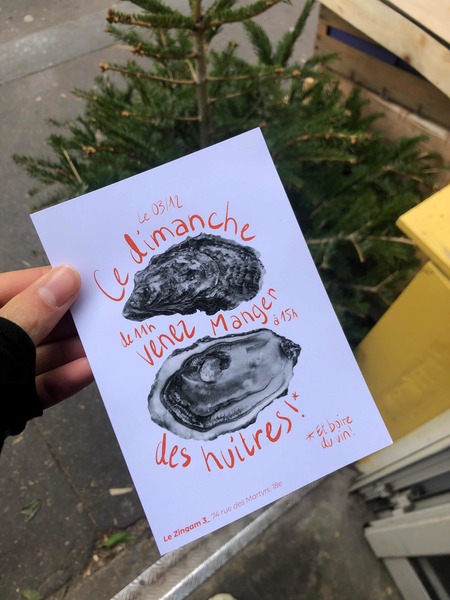 Le 03/12
Ce dimanche
de 11h venez Manger à 15h
des huîtres!*
*Et boire
du vin!
Le Zingam 3_ 74 rue des Martyrs, 18e